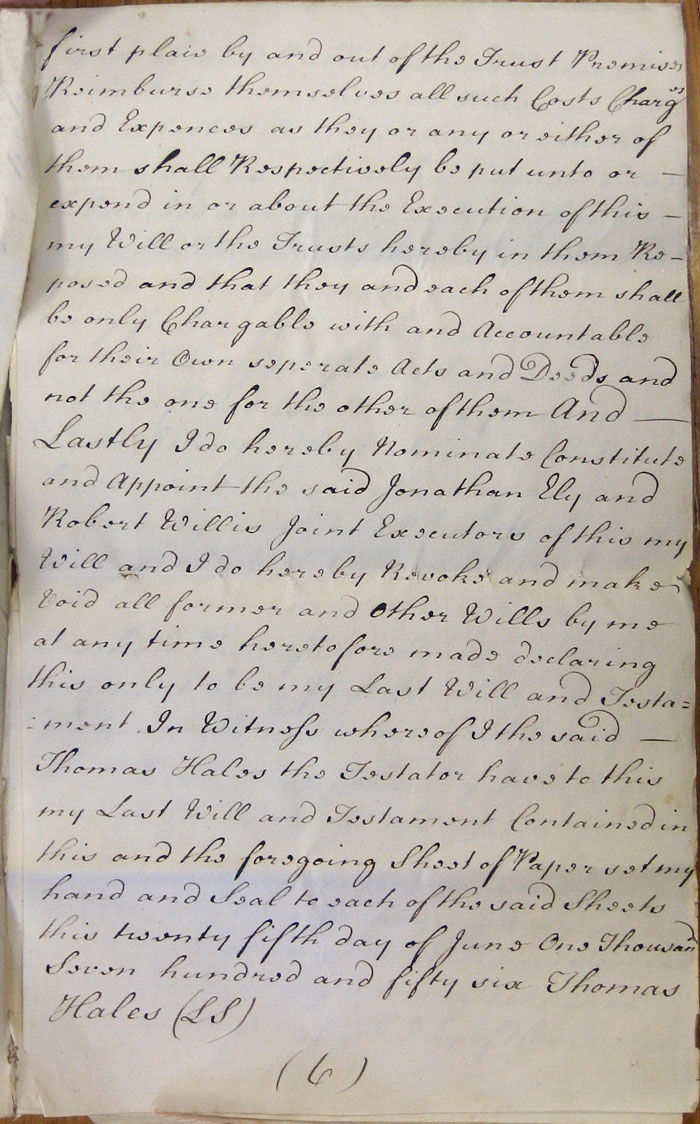 first place by and out of the Trust Premises
Reimburse themselves all such Costs Charges
and Expences as they or any or either of
them shall Respectively be put unto or —
expend in or about the Execution of this —
my Will or the Trusts hereby in them Re-
posed and that they and each of them shall
be only Chargable with and Accountable
for their Own seperate Acts and Deeds and
not the one for the other of them And —
Lastly I do hereby Nominate Constitute
and Appoint the said Jonathan Ely and
Robert Willis Joint Executors of this my
Will and I do hereby Revoke and make
Void all former and Other Wills by me
at any time heretofore made declaring
this only to be my Last Will and Testa=
=ment. In Witness whereof I the said —
Thomas Hales the Testator have to this
my Last Will and Testament Contained in
this and the foregoing Sheet of Paper set my
hand and Seal to each of the said Sheets
this twenty fifth day of June One Thousand
Seven hundred and fifty six Thomas
Hales (LS)
(6)